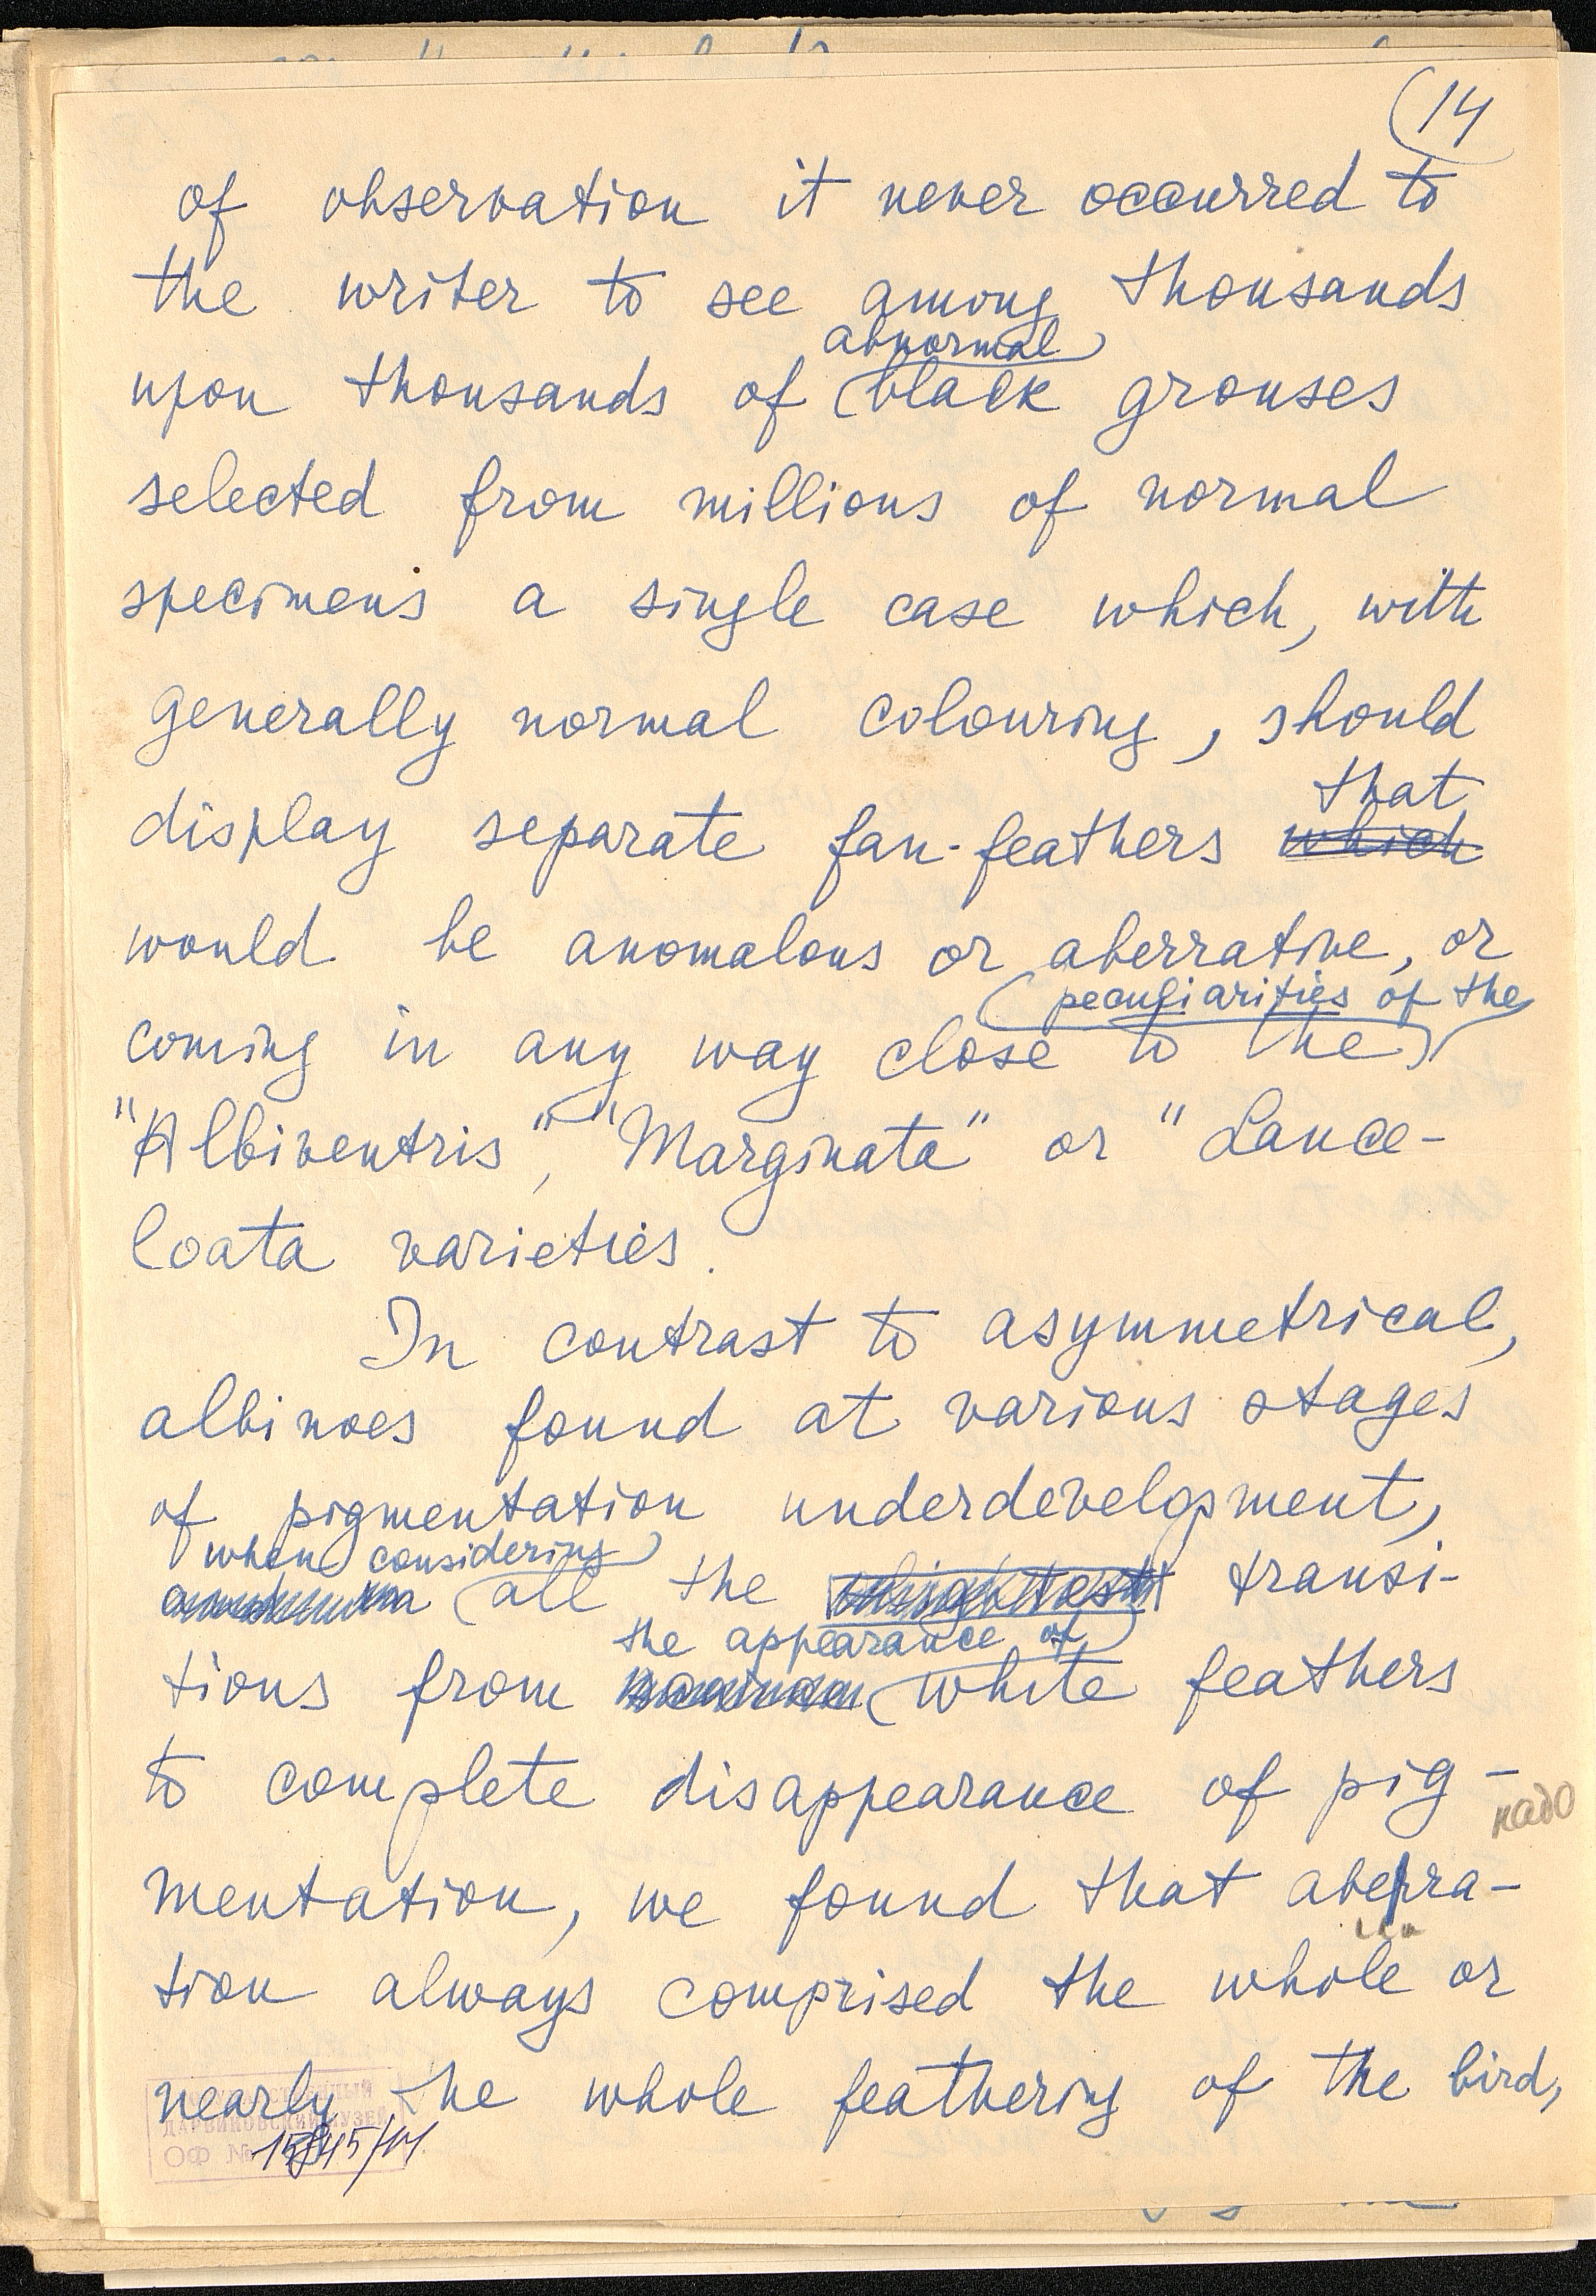 14
of observation it never occurred to
the writer to see among thousands
abnormal
upon thousands of black grouses
selected from millions of normal
specimens a single case which, with
generally normal colouring, should
that
display separate fan-feathers which
would be anomalous or aberrative, or
peculiarities of the
coming in any way close to the
"Albiventris", "Marginata" or "Lance-
loata varieties.
In contrast to asymmetrical,
albinoes found at various stages
of pigmentation underdevelopment,
when considering
all the transi-
the appearance of
tions from white feathers
to complete disappearance of pig-
надо
mentation, we found that aberra-
tion always comprised the whole or
nearly the whole feathering of the bird,
ДАРВИНОВСКИЙ МУЗЕЙ
ОФ №